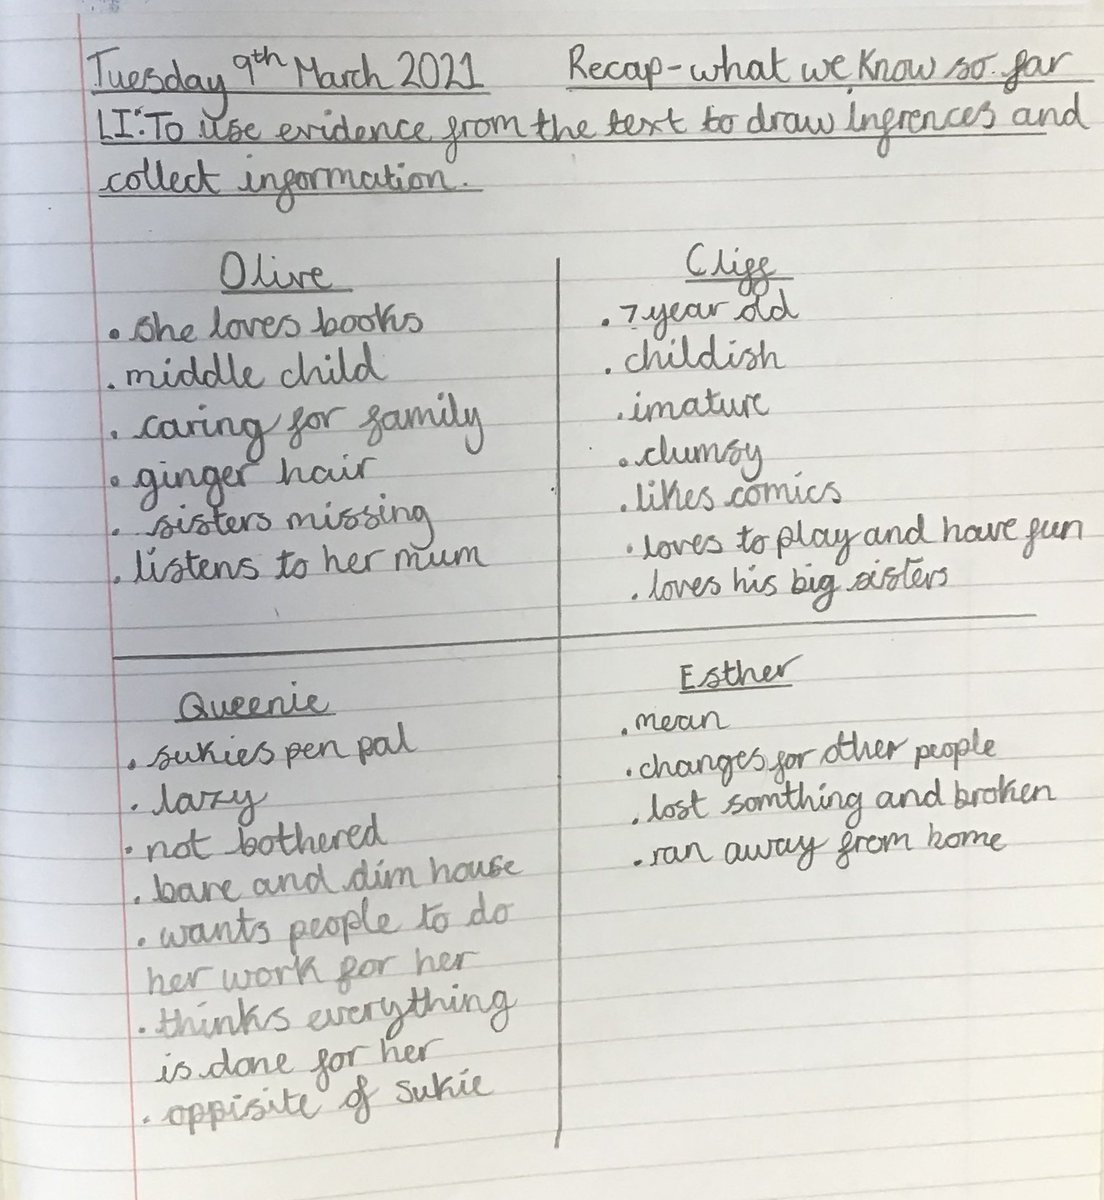 Tuesday 9th March 2021 Recap-what we know so far
LI: To use evidence from the text to draw infrences and
collect information.
Olive
. she loves books
. middle child
. caring for family
. ginger hair
. sisters missing
. listens to her mum
Cliff
. 7 year old
. childish
. imature
. clumsy
. likes comics
. loves to play and have fun
. loves his big sisters
Queenie
. sukies pen pal
. lazy
. not bothered
. bare and dim house
. wants people to do
her work for her
. thinks everything
is done for her
. oppisite of sukie
Esther
. mean
. changes for other people
. lost somthing and broken
. ran away from home